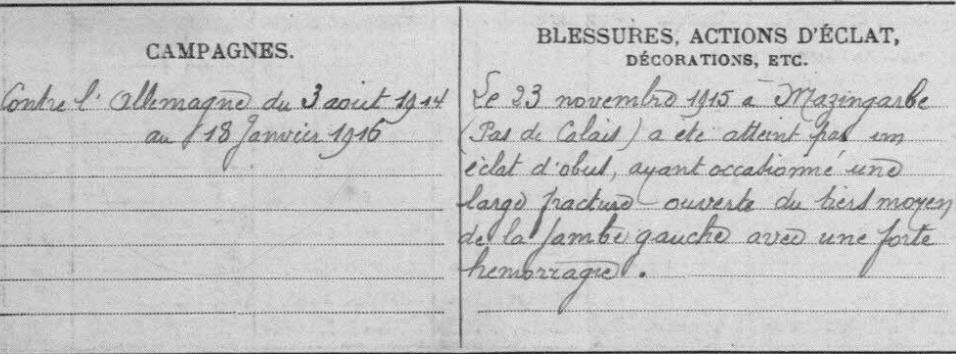 CAMPAGNES.
Contre l'Allemagne du 3 aout 1914
au 18 Janvier 1916
BLESSURES, ACTIONS D'ÉCLAT,
DÉCORATIONS, ETC.
Le 23 novembre 1915 à Mazingarbe
(Pas de Calais) a été atteint par un
éclat d'obus, ayant occasionné une
large fracture ouverte du tiers moyen
de la jambe gauche avec une forte
hemorragie.